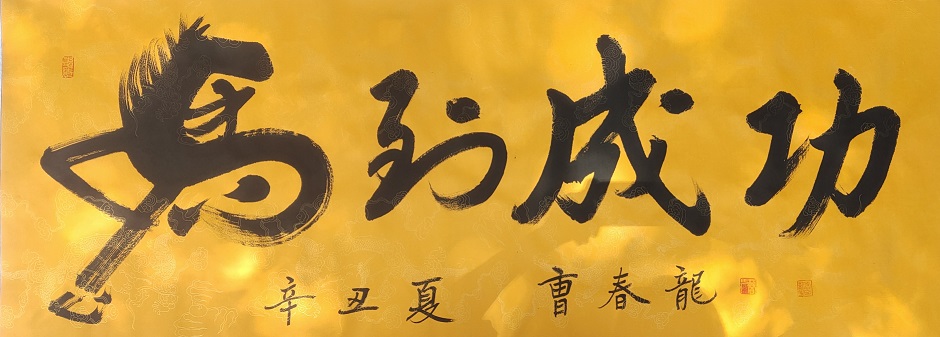 馬到成功
辛丑夏 曹春龍